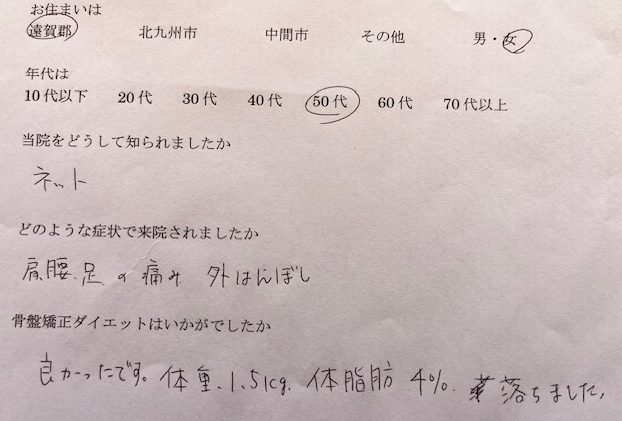 お住まいは
遠賀郡 北九州市 中間市 その他 男・女
年代は
10代以下 20代 30代 40代 50代 60代 70代以上
当院をどうして知られましたか
ネット
どのような症状で来院されましたか
肩、腰、足の痛み 外はんぼし
骨盤矯正ダイエットはいかがでしたか
良かったです。体重、1.5kg. 体脂肪 4%. 落ちました。